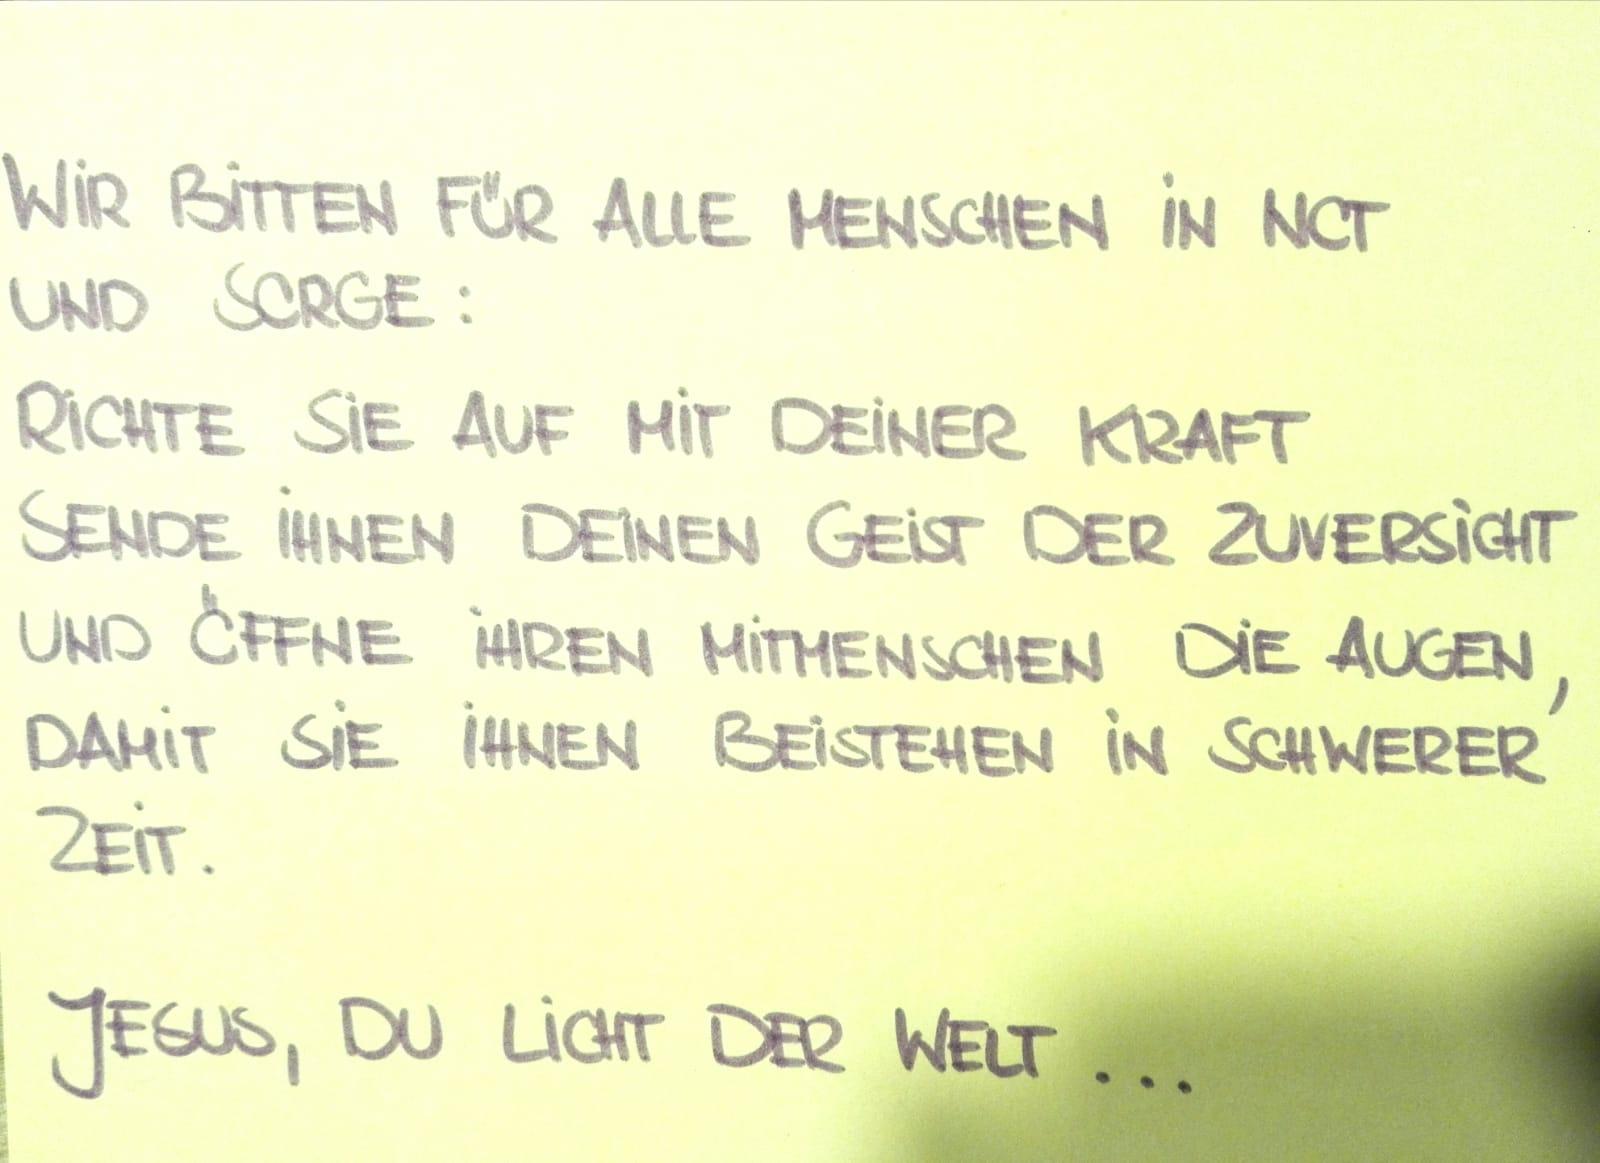 WIR BITTEN FÜR ALLE MENSCHEN IN NOT
UND SORGE:
RICHTE SIE AUF MIT DEINER KRAFT
SENDE IHNEN DEINEN GEIST DER ZUVERSICHT
UND ÖFFNE IHREN MITMENSCHEN DIE AUGEN,
DAMIT SIE IHNEN BEISTEHEN IN SCHWERER
ZEIT.
JESUS, DU LICHT DER WELT...